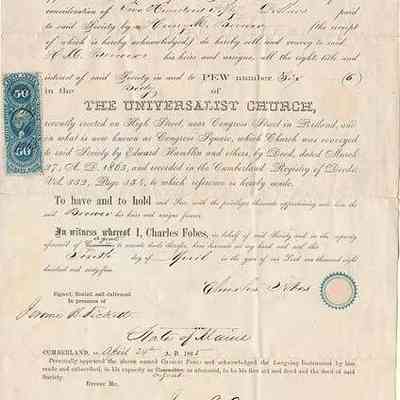 consideration of Two Hundred Fifty Dollars paid
to said Society by Henry M. (the receipt
of which is hereby acknowledged,) do hereby sell and convey to said
H. M. his heirs and assigns, all the right, title and
interest of said Society in and to PEW number Six (6)
in the Body of
THE UNIVERSALIST CHURCH,
recently erected on High Street, near Congress Street in Portland, and
on what is now known as Congress Square, which Church was conveyed
to said Society by Edward Hamblin and others, by Deed, dated March
A. D. 1865, and recorded in the Cumberland Registry of Deeds,
Vol. 332, Page to which reference is hereby made.
To have and to hold and Pew, with the privileges thereunto appertaining unto him the
said his heirs and assigns forever.
In witness whereof I, Charles Fobes, in behalf of said Society and in the capacity
of to execute deeds therefor, have hereunto set my hand and seal this
day of April in the year of our Lord one thousand eight
hundred and sixty-five
Charles Fobes
Signed, Sealed and delivered
in presence of
State of Maine
CUMBERLAND, ss. April 24th A. D. 1865
Personally appeared the above named CHARLES FOBES and acknowledged the foregoing Instrument by him
made and subscribed, in his capacity as as aforesaid, to be his free act and deed and the deed of said
Society. agent
Before Me,
50
50